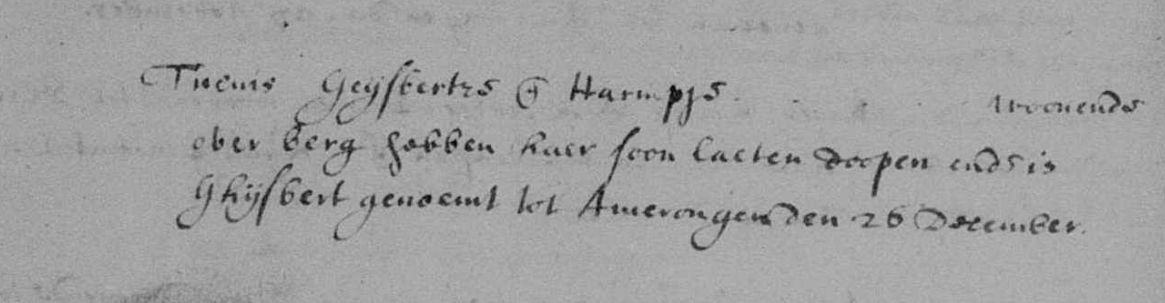 Tuenis Geijsbertss en Harmpjs woonende
over berg hebben haer soon laeten doopen ende is
Ghijsbert genoemt tot Amerongen den 26 December.